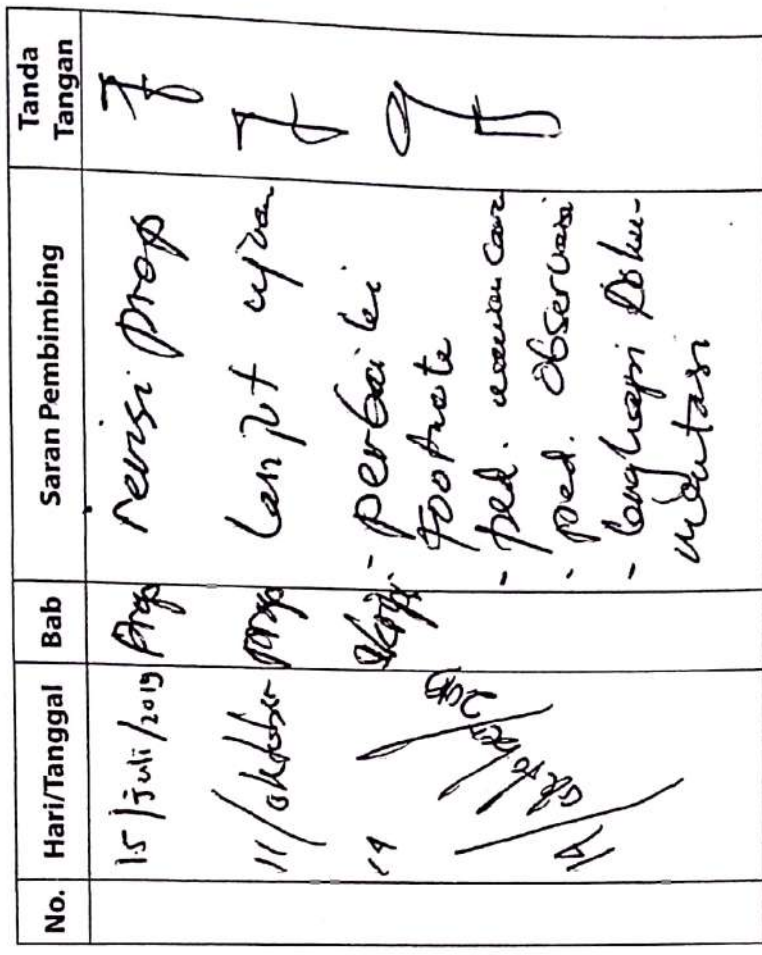 No. Hari/Tanggal Bab Saran Pembimbing Tanda Tangan
15/Juli/2019 Prop revisi prop
11/oktober prop lanjut ujian
14 - perbaiki
footnote
- ped. wawancara
- ped. observasi
- lengkapi doku-
mentasi